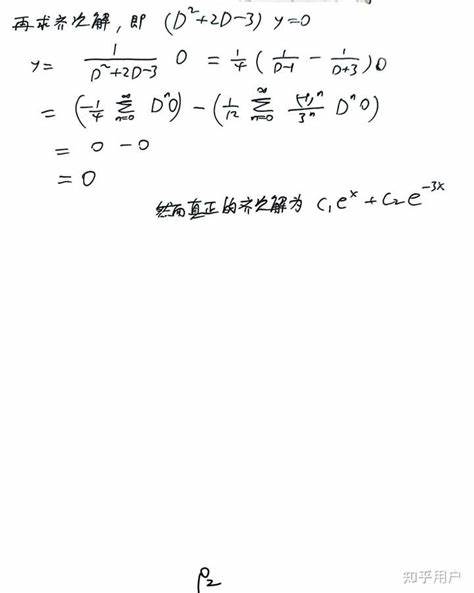 再求齐次解,即 (D²+2D-3) y=0
y= 1/(D²+2D-3) 0 = 1/4 ( 1/(D-1) - 1/(D+3) ) 0
= (-1/4 ∑_{n=0}^{∞} Dⁿ0) - (1/12 ∑_{n=0}^{∞} (-1)ⁿ/3ⁿ Dⁿ0)
= 0 - 0
= 0
然而真正的齐次解为 C₁eˣ + C₂e⁻³ˣ
P2
知乎用户